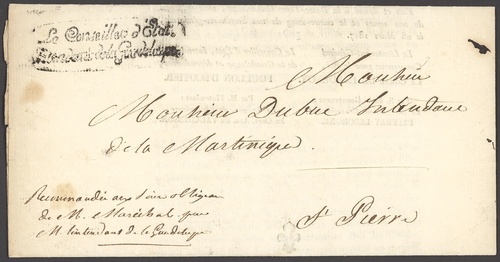 Le Conseiller d'Etat,
Intendant de la Guadeloupe.
Monsieur
Monsieur Dubuc Intendant
de la Martinique.
Recommandée aux soins obligeans
de M. Maréchal par
M. l'intendant de la Guadeloupe
St Pierre